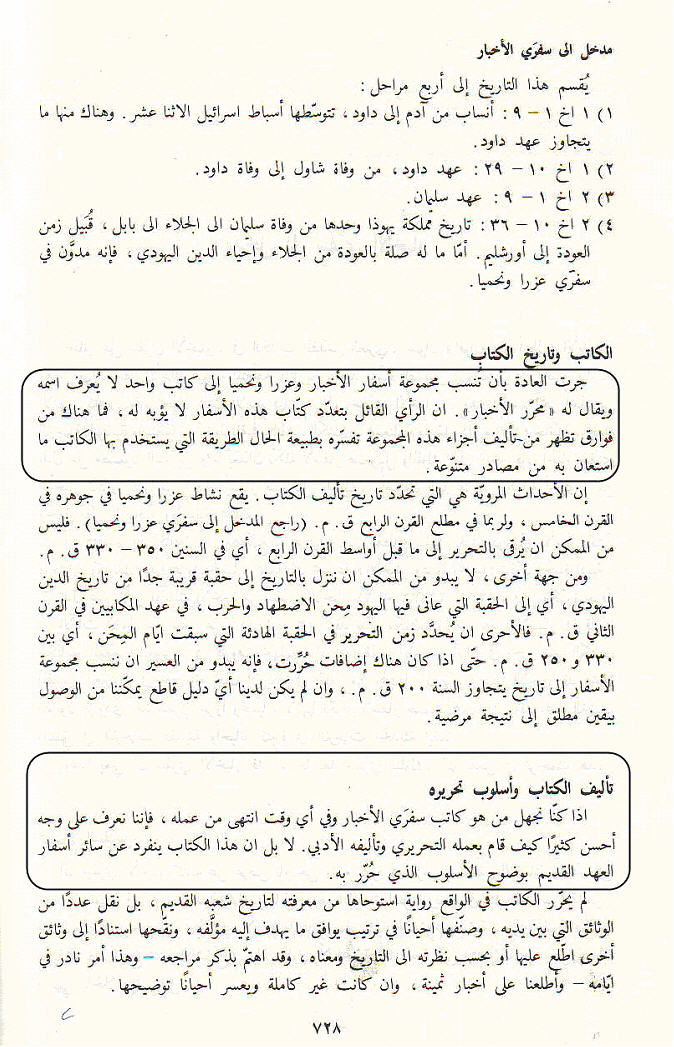 مدخل الى سفرَي الأخبار
يُقسم هذا التاريخ إلى أربع مراحل :
١) ١ اخ ١ – ٩ : أنساب من آدم إلى داود ، تتوسّطها أسباط اسرائيل الاثنا عشر . وهناك منها ما
يتجاوز عهد داود.
٢) ١ اخ ١٠ – ٢٩ : عهد داود ، من وفاة شاول إلى وفاة داود .
٣) ٢ اخ ١ – ٩ : عهد سليمان.
٤) ٢ اخ ١٠ – ٣٦ : تاريخ مملكة يهوذا وحدها من وفاة سليمان الى الجلاء الى بابل ، قُبَيل زمن
العودة إلى أورشليم . أمّا ما له صلة بالعودة من الجلاء وإحياء الدين اليهودي ، فإنه مدوَّن في
سفرَي عزرا ونحميا .
الكاتب وتاريخ الكتاب
جرت العادة بأن تُنسب مجموعة أسفار الأخبار وعزرا ونحميا إلى كاتب واحد لا يُعرف اسمه
ويقال له «محرّر الأخبار» . ان الرأي القائل بتعدّد كتّاب هذه الأسفار لا يؤبه له ، فما هناك من
فوارق تظهر من تأليف أجزاء هذه المجموعة تفسّره بطبيعة الحال الطريقة التي يستخدم بها الكاتب ما
استعان به من مصادر متنوّعة .
إن الأحداث المرويّة هي التي تحدّد تاريخ تأليف الكتاب . يقع نشاط عزرا ونحميا في جوهره في
القرن الخامس ، ولربما في مطلع القرن الرابع ق . م . (راجع المدخل إلى سفرَي عزرا ونحميا) . فليس
من الممكن ان يُرقى بالتحرير إلى ما قبل أواسط القرن الرابع ، أي في السنين ٣٥٠ – ٣٣٠ ق . م .
ومن جهة أخرى ، لا يبدو من الممكن ان ننزل بالتاريخ إلى حقبة قريبة جدًا من تاريخ الدين
اليهودي ، أي إلى الحقبة التي عانى فيها اليهود مِحن الاضطهاد والحرب ، في عهد المكابيين في القرن
الثاني ق . م . فالأحرى ان يُحدَّد زمن التحرير في الحقبة الهادئة التي سبقت ايّام المِحَن ، أي بين
٣٣٠ و ٢٥٠ ق . م . حتّى اذا كان هناك إضافات حُرِّرت، فإنه يبدو من العسير ان ننسب مجموعة
الأسفار إلى تاريخ يتجاوز السنة ٢٠٠ ق . م . ، وان لم يكن لدينا أيّ دليل قاطع يمكّننا من الوصول
بيقين مطلق إلى نتيجة مرضية .
تأليف الكتاب وأسلوب تحريره
اذا كنّا نجهل من هو كاتب سفرَي الأخبار وفي أي وقت انتهى من عمله ، فإننا نعرف على وجه
أحسن كثيرًا كيف قام بعمله التحريري وتأليفه الأدبي . لا بل ان هذا الكتاب ينفرد عن سائر أسفار
العهد القديم بوضوح الأسلوب الذي حُرّر به .
لم يحرّر الكاتب في الواقع رواية استوحاها من معرفته لتاريخ شعبه القديم ، بل نقل عددًا من
الوثائق التي بين يديه ، وصنّفها أحيانًا في ترتيب يوافق ما يهدف إليه مؤلَّفه ، ونقّحها استنادًا إلى وثائق
أخرى اطّلع عليها أو بحسب نظرته الى التاريخ ومعناه ، وقد اهتمّ بذكر مراجعه – وهذا أمر نادر في
ايّامه – وأطلعنا على أخبار ثمينة ، وان كانت غير كاملة ويعسر أحيانًا توضيحها .
٧٢٨